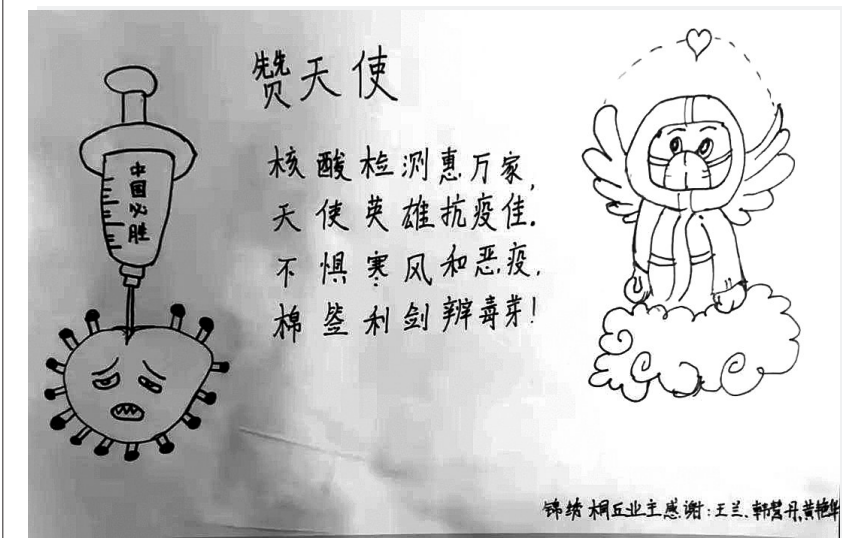 赞天使
中国必胜
核酸检测惠万家,
天使英雄抗疫佳.
不惧寒风和恶疫,
棉签利剑辨毒芽!
锦绣桐丘业主感谢:王兰、韩营丹,黄艳华